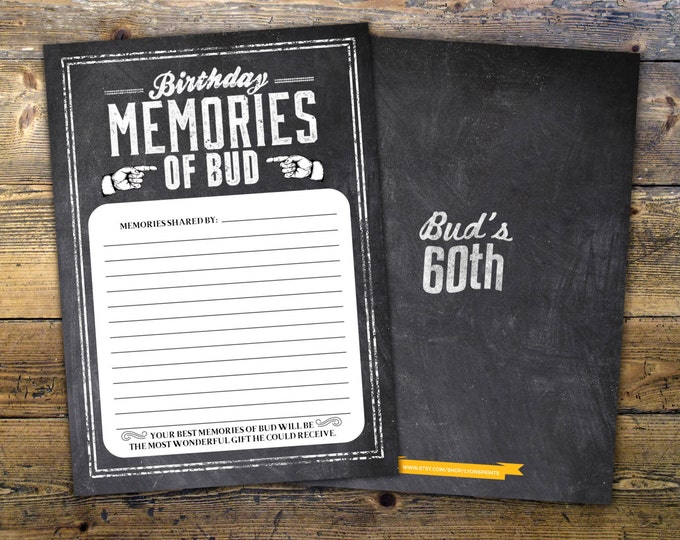 Birthday
MEMORIES
OF BUD
MEMORIES SHARED BY:
YOUR BEST MEMORIES OF BUD WILL BE
THE MOST WONDERFUL GIFT HE COULD RECEIVE.
Bud's
60th
WWW.ETSY.COM/SHOP/LYONSPRINTS